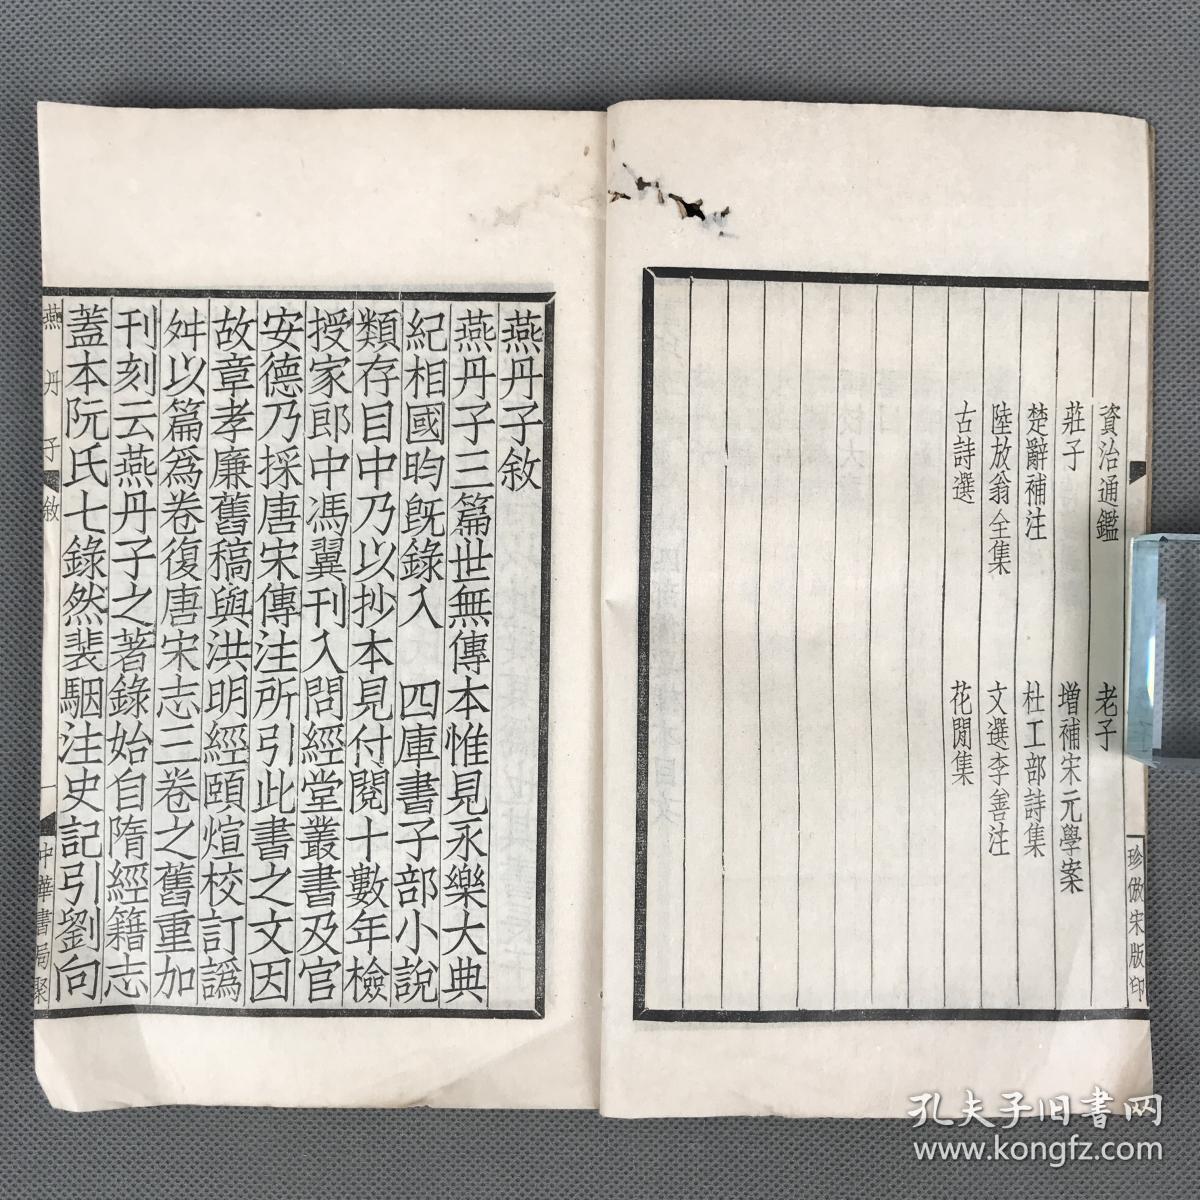 資治通鑑 老子
莊子 增補宋元學案
楚辭補注 杜工部詩集
陸放翁全集 文選李善注
古詩選 花間集
珍倣宋版印
燕丹子敘
燕丹子三篇世無傳本惟見永樂大典
紀相國昀旣錄入 四庫書子部小說
類存目中乃以抄本見付閱十數年檢
授家郎中馮翼刊入問經堂叢書及官
安德乃採唐宋傳注所引此書之文因
故章孝廉舊稿與洪明經頤煊校訂譌
舛以篇爲卷復唐宋志三卷之舊重加
刊刻云燕丹子之著錄始自隋經籍志
蓋本阮氏七錄然裴駰注史記引劉向
燕丹子 敘 一 中華書局聚
孔夫子旧书网
www.kongfz.com